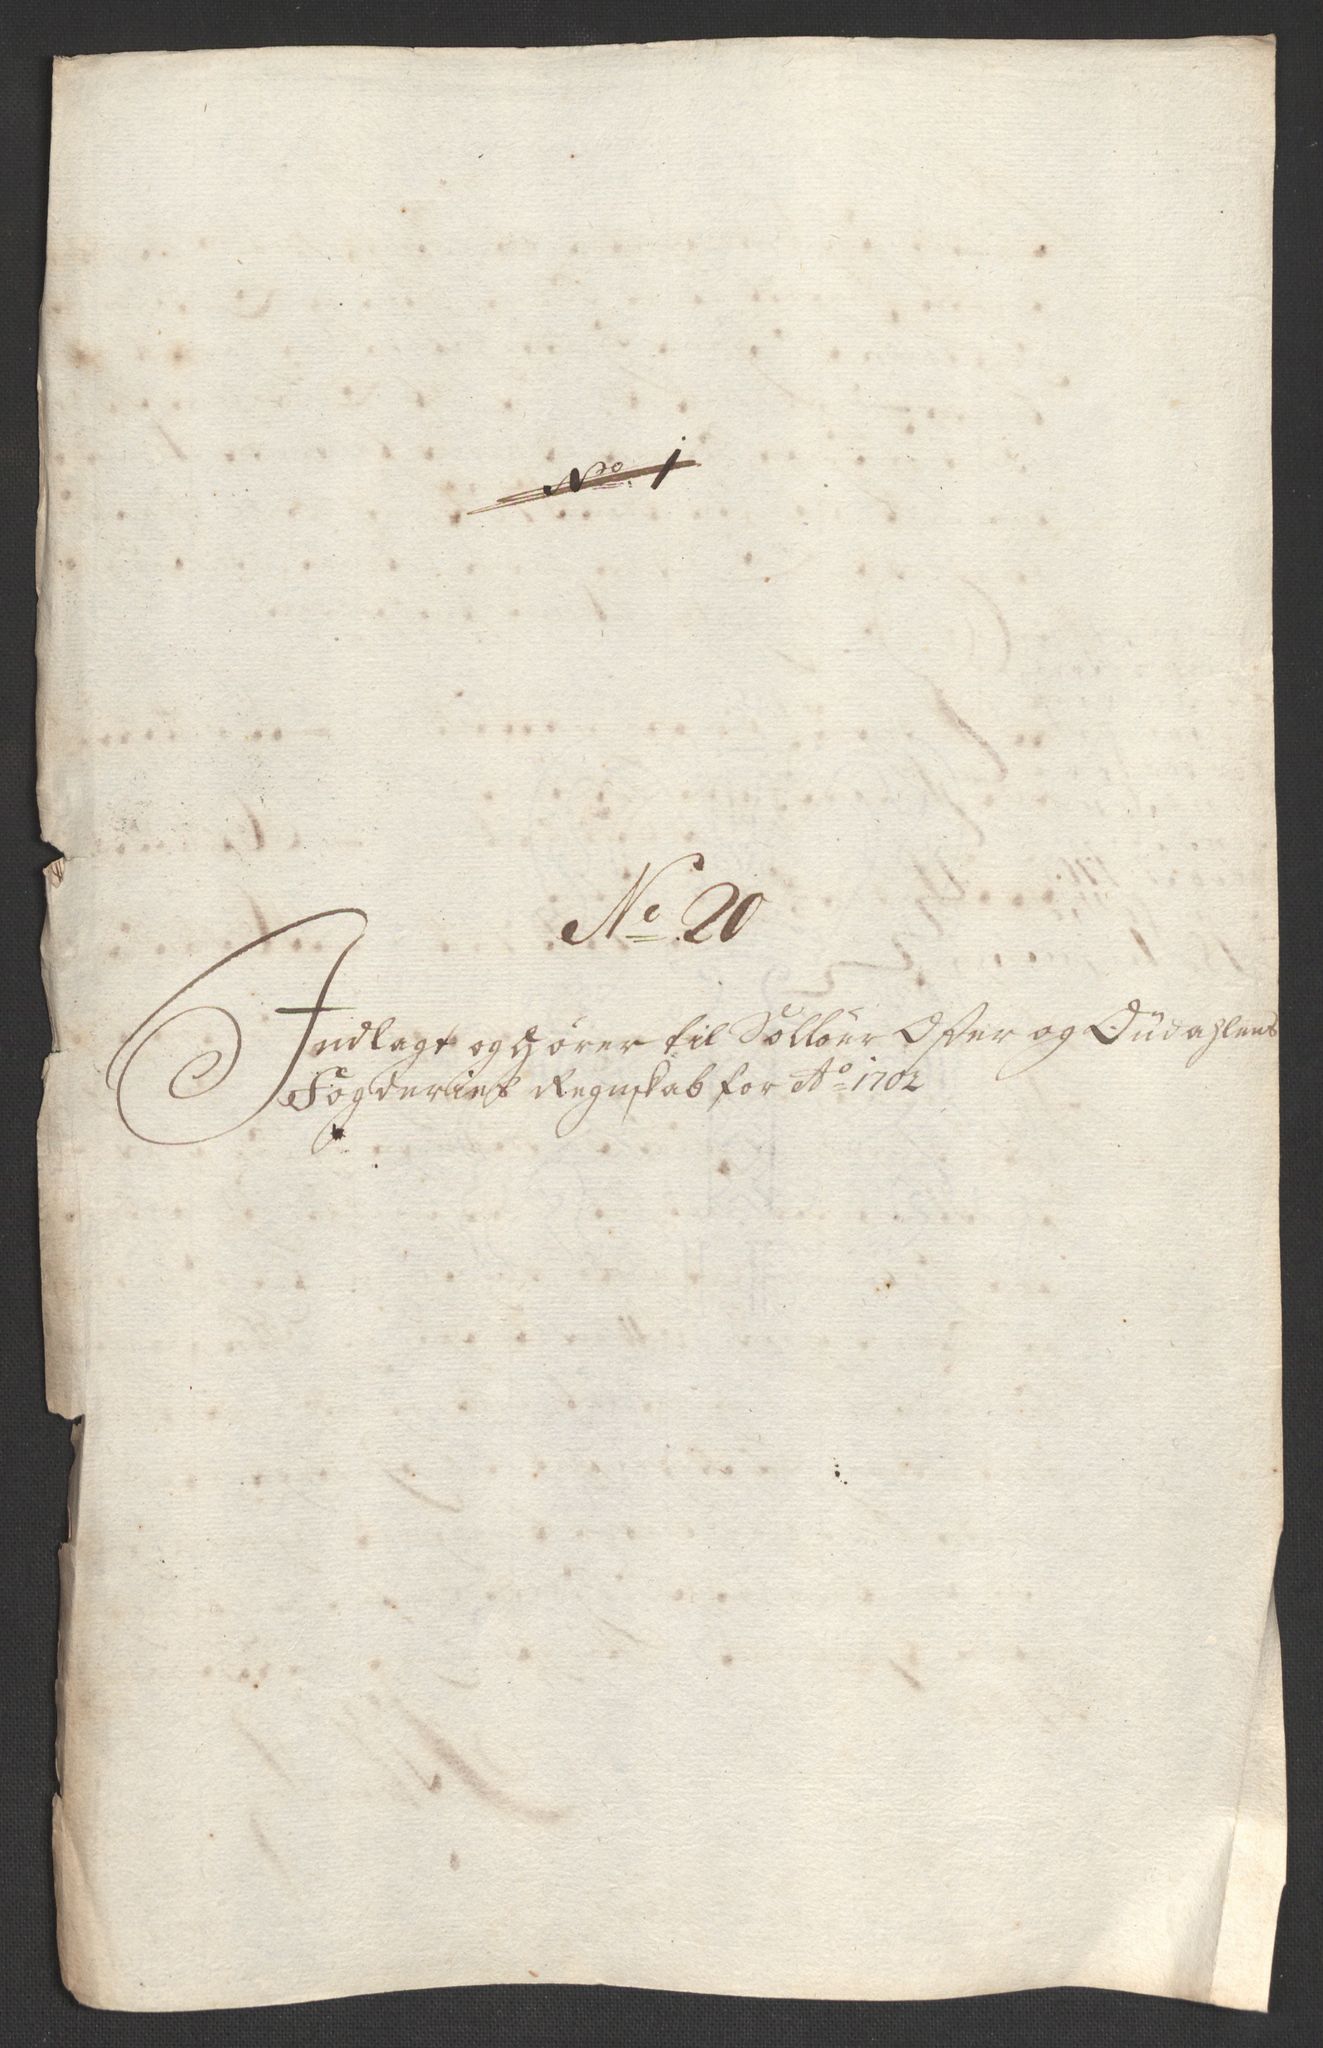 No 1
No 20
Indlagt og Hörer til Sollöer Öster og Oüdahlens
Fogderies Regnskab for Ao 1702